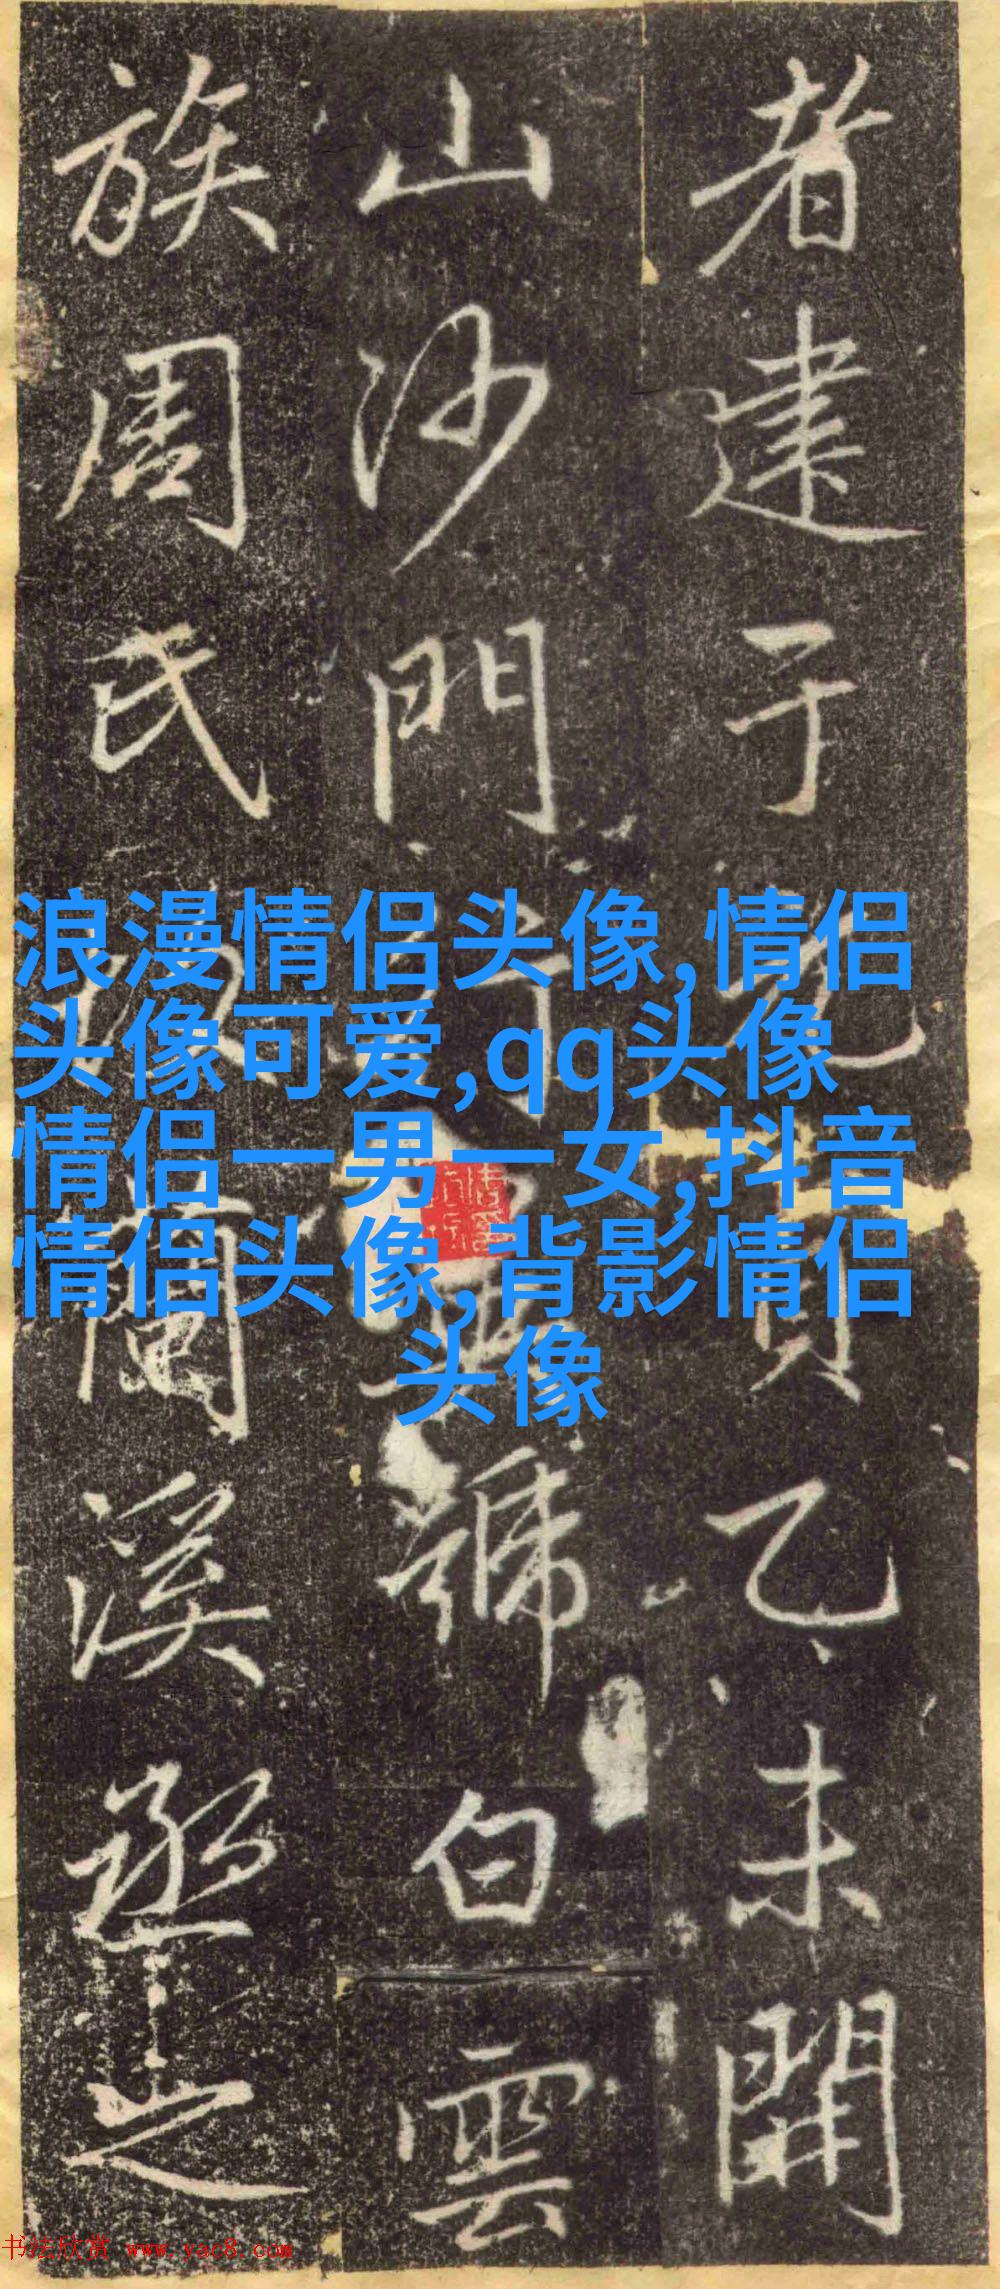 者建于元貞乙未開
山沙門行號白雲
族周氏蘭溪丞之
浪漫情侣头像,情侣
头像可爱,qq头像
情侣一男一女,抖音
情侣头像,背影情侣
头像
书法欣赏 www.yac8.com